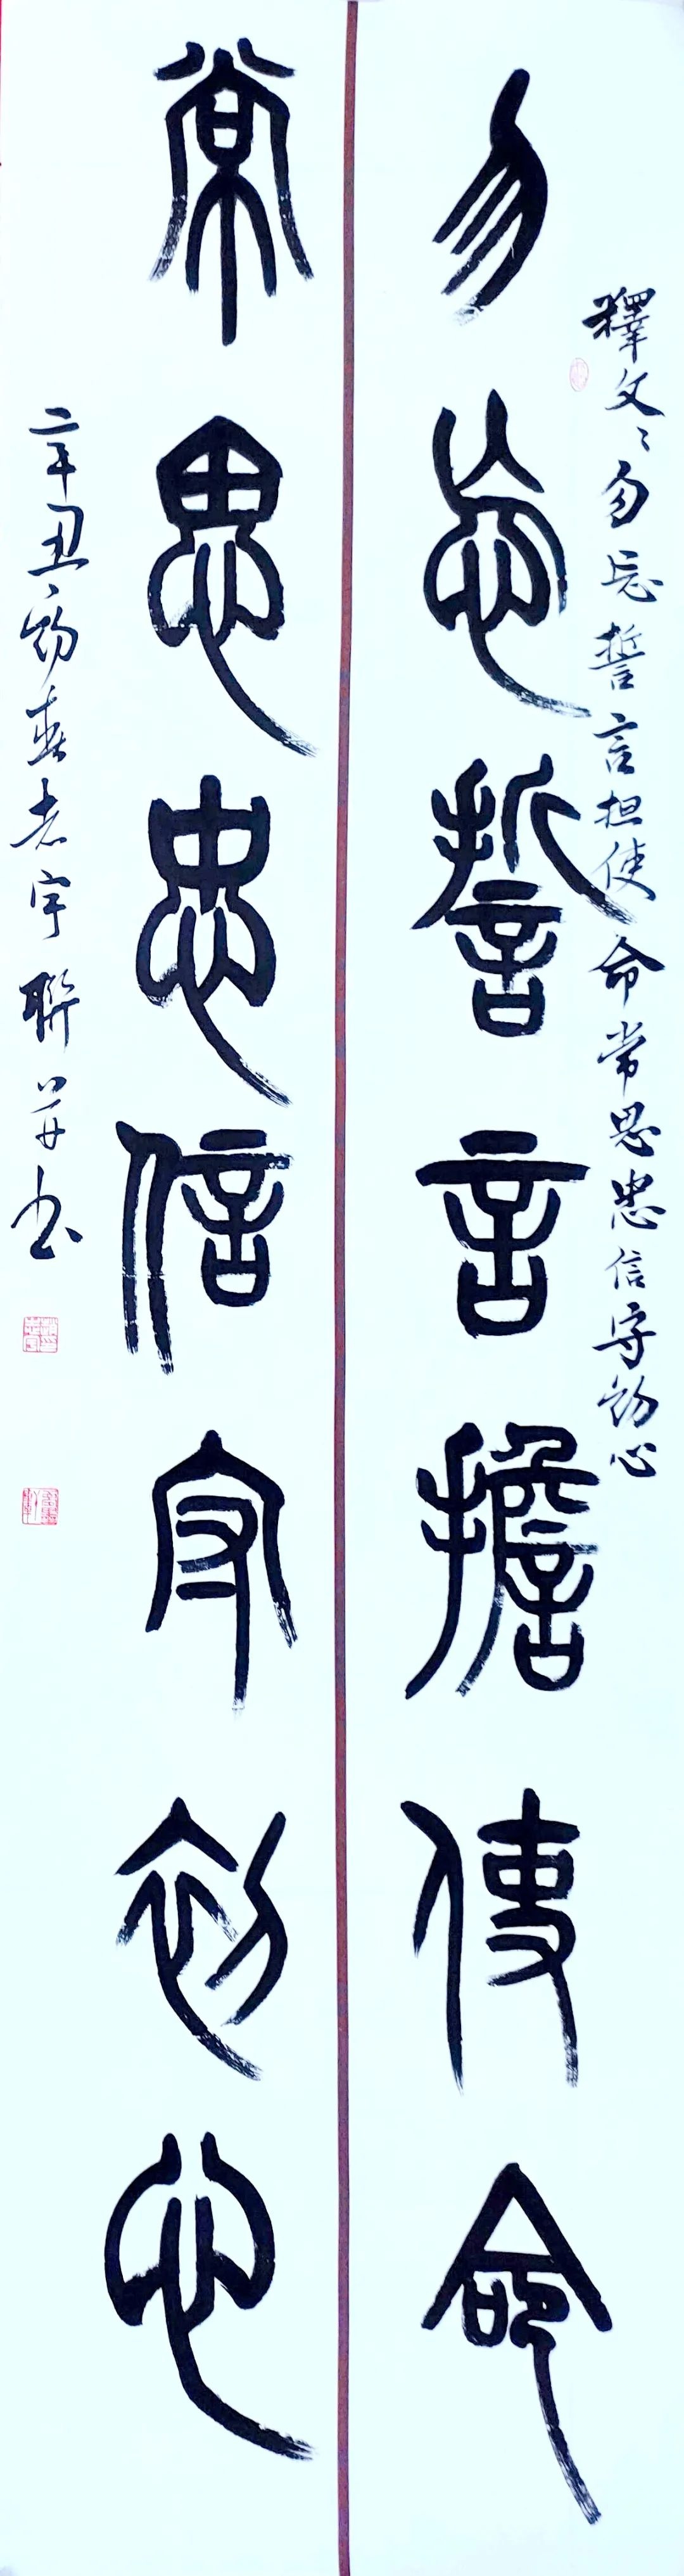 釋文:勿忘誓言担使命常思忠信守初心
勿忘誓言擔使命
常思忠信守初心
辛丑初春志宇聯並书